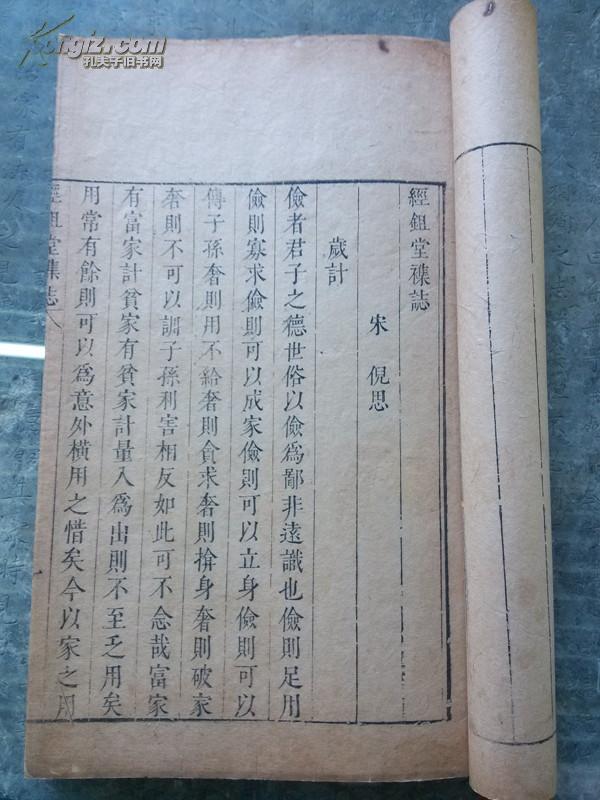 經鉏堂襍誌
宋 倪思
歲計
儉者君子之德世俗以儉爲鄙非遠識也儉則足用
儉則寡求儉則可以成家儉則可以立身儉則可以
傳子孫奢則用不給奢則貪求奢則揜身奢則破家
奢則不可以訓子孫利害相反如此可不念哉富家
有富家計貧家有貧家計量入爲出則不至乏用矣
用常有餘則可以爲意外橫用之惜矣今以家之用
經鉏堂襍誌
kongfz.com
孔夫子旧书网